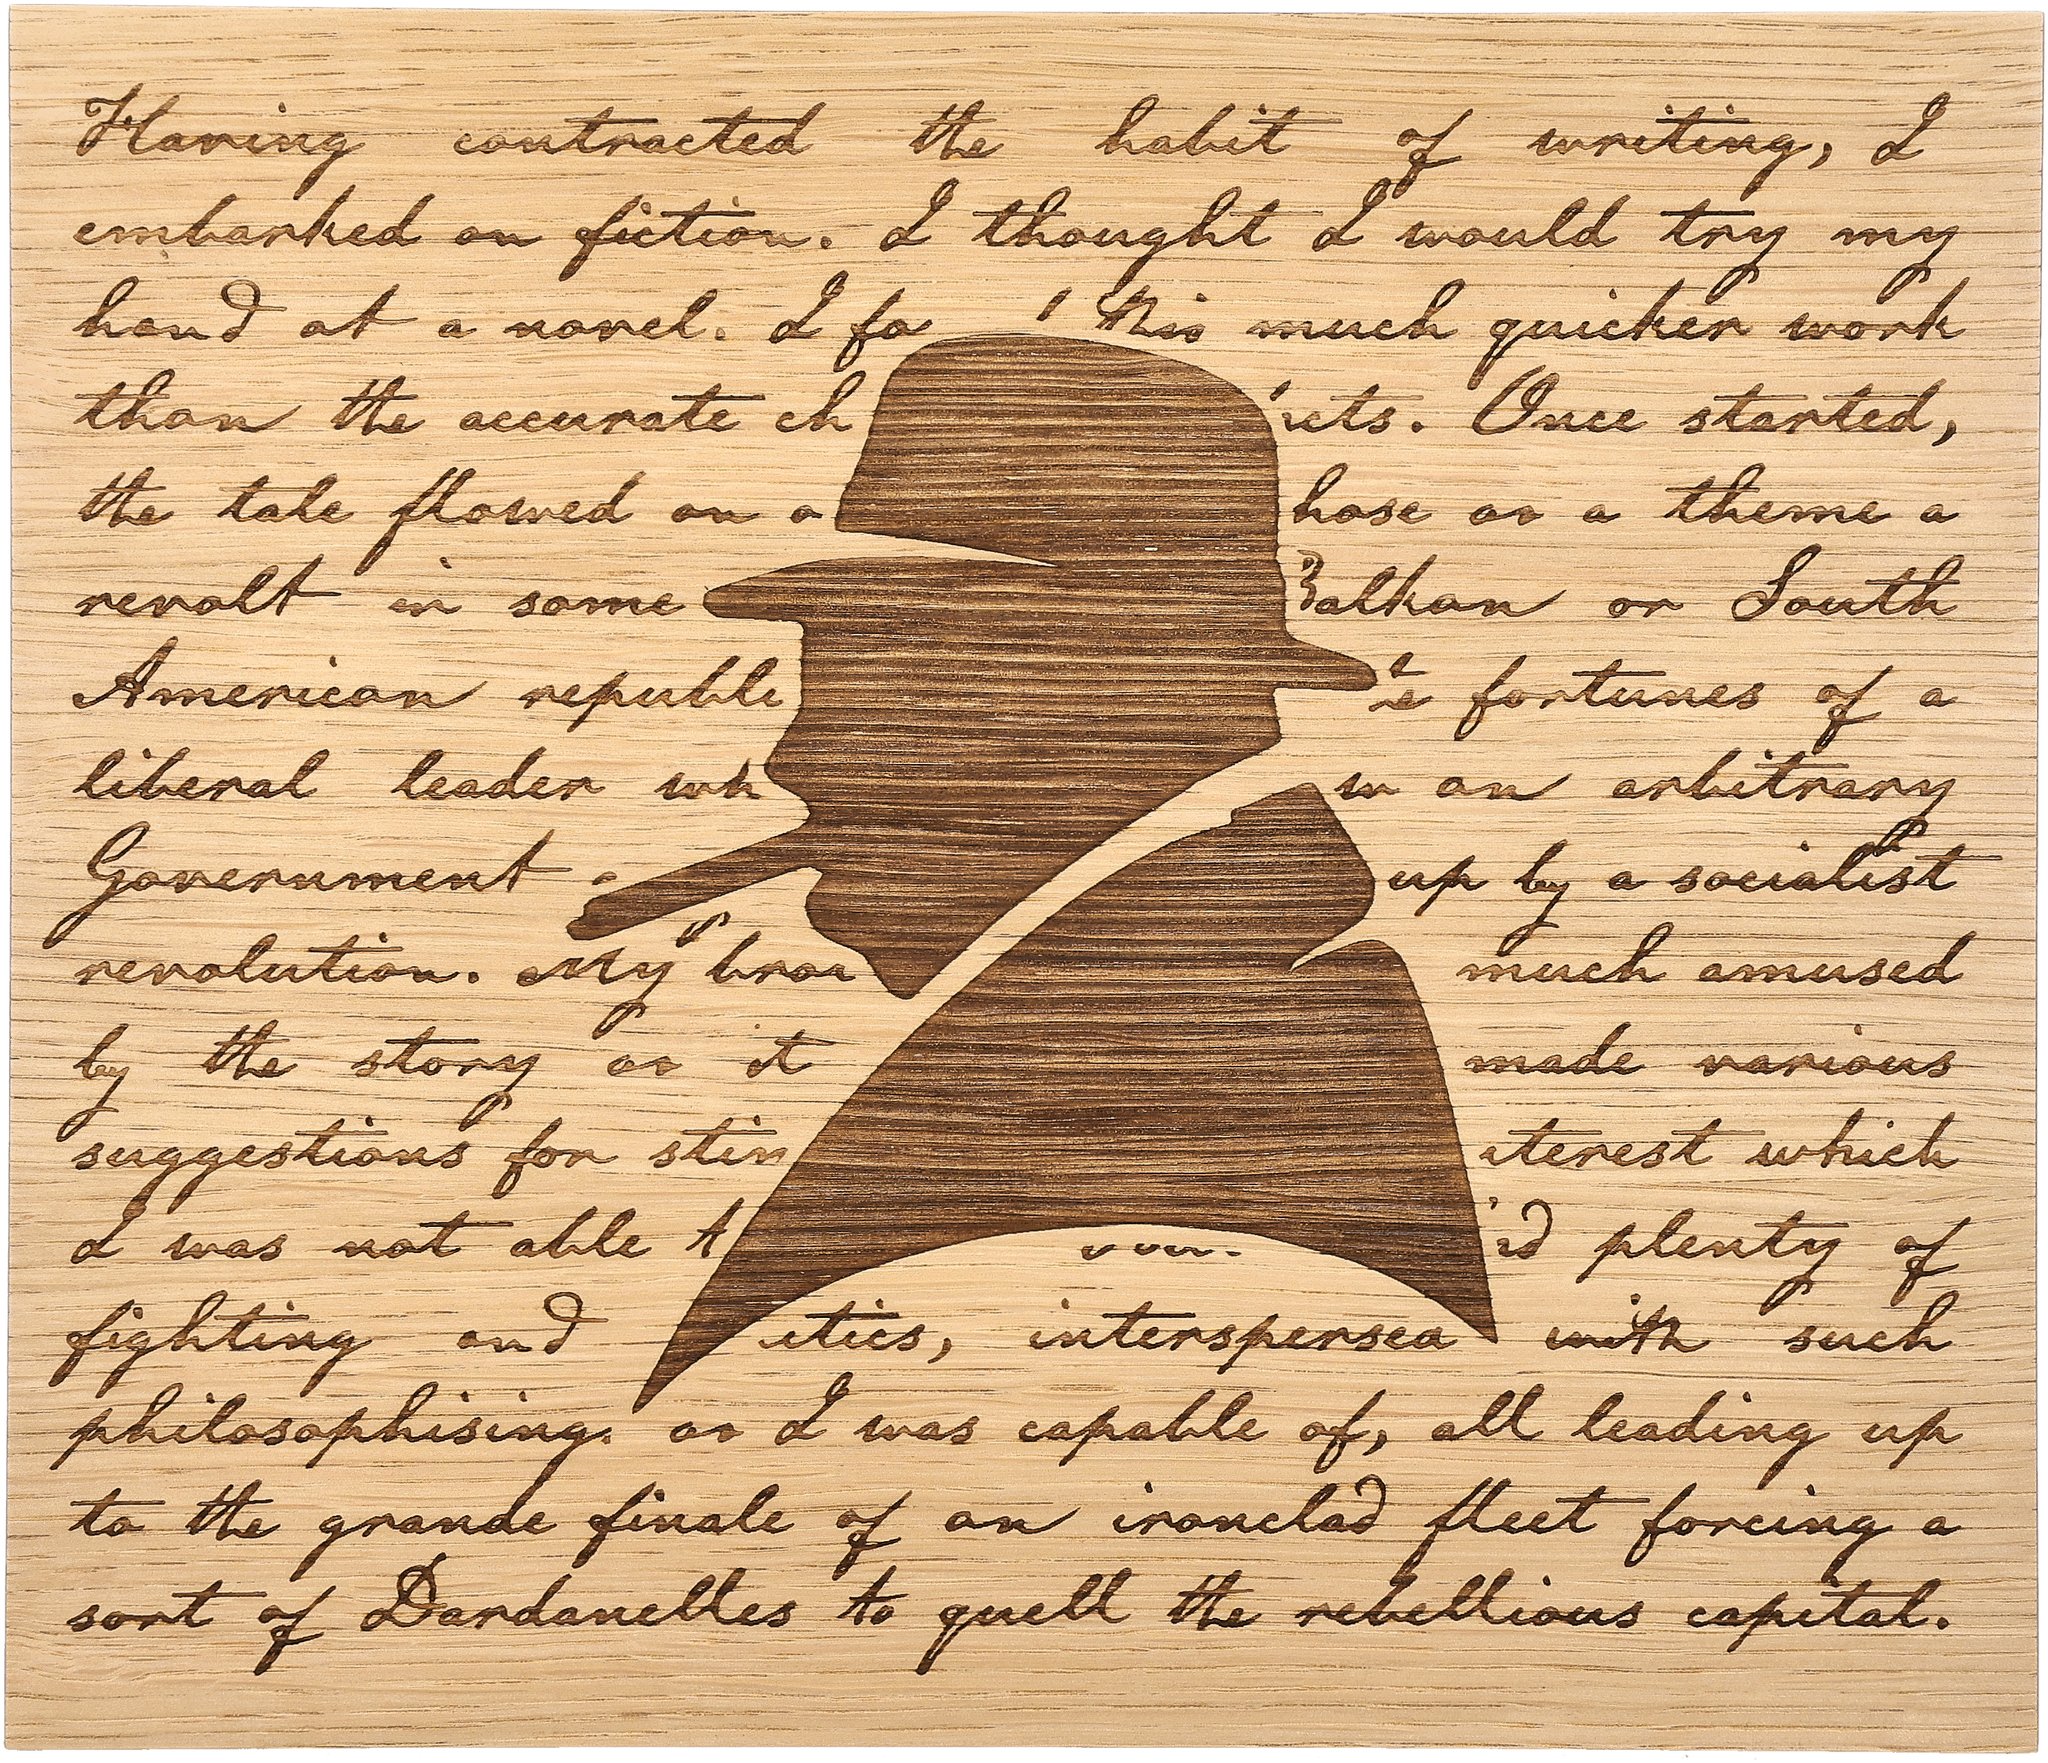 Having contracted the habit of writing, I
embarked on fiction. I thought I would try my
hand at a novel. I fo this much quicker work
than the accurate ch cts. Once started,
the tale flowed on a hose as a theme a
revolt in some Balkan or South
American republi e fortunes of a
liberal leader wh w an arbitrary
Government up by a socialist
revolution. My bro much amused
by the story as it made various
suggestions for stim terest which
I was not able t d plenty of
fighting and itics, interspersed with such
philosophising. as I was capable of, all leading up
to the grande finale of an ironclad fleet forcing a
sort of Dardanelles to quell the rebellious capital.